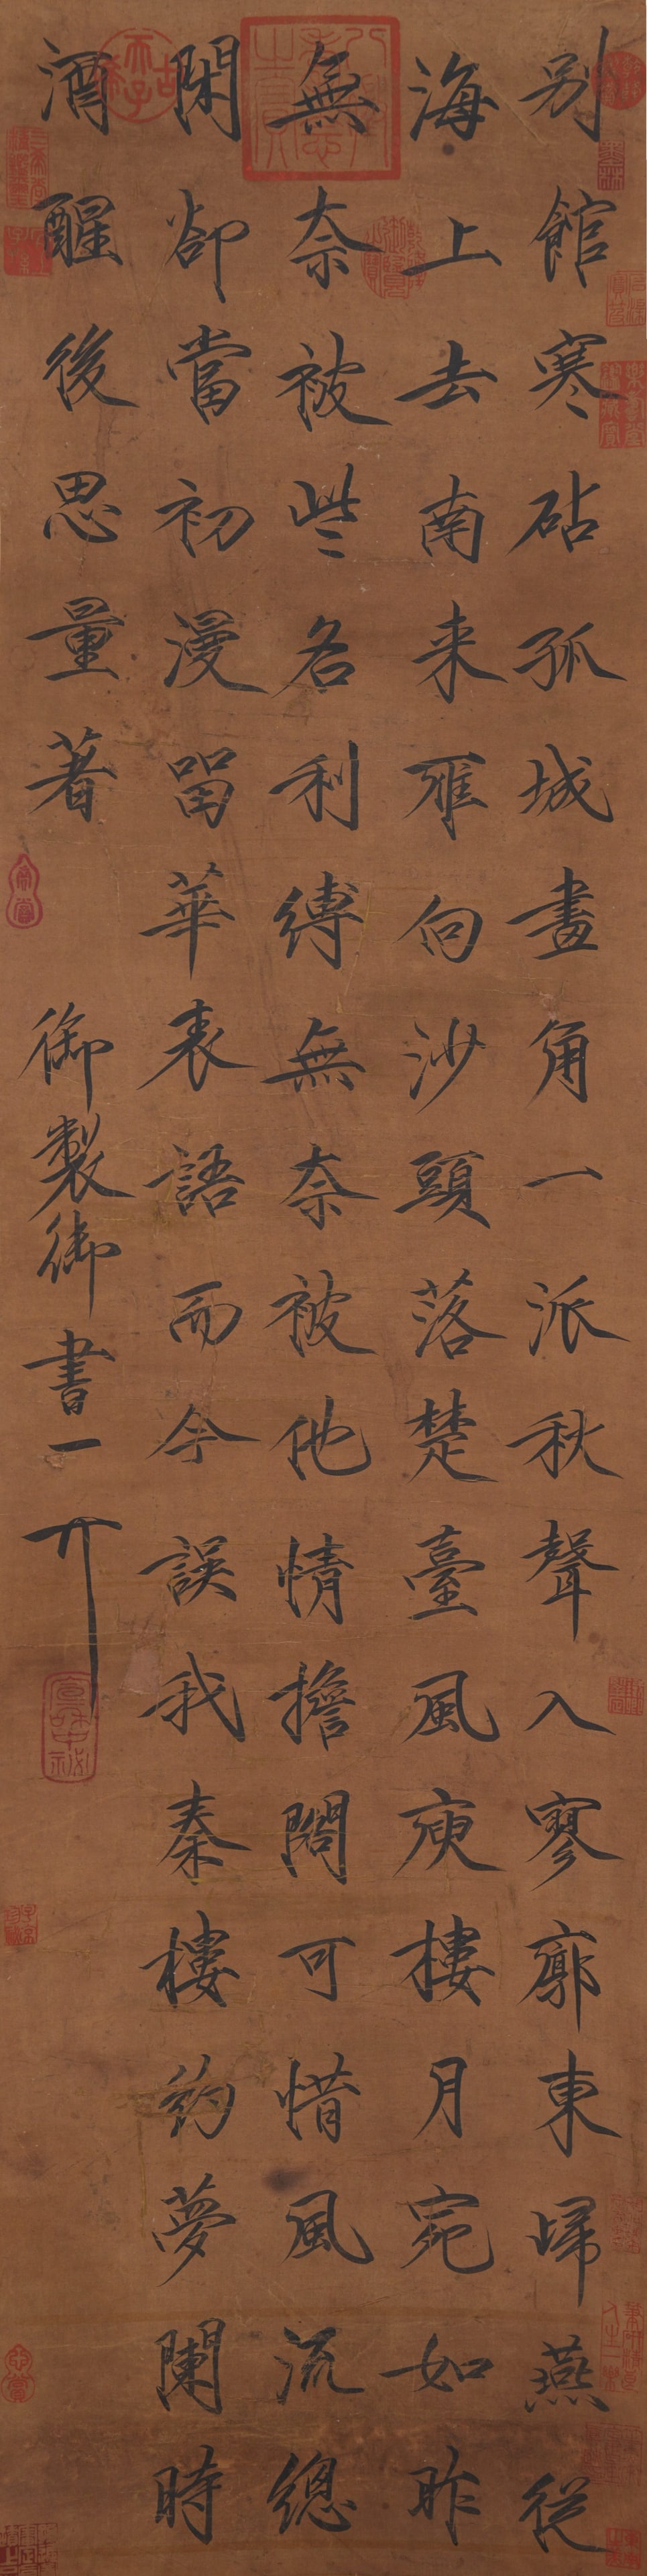 别館寒砧孤城畫角一派秋聲入寥廓東歸燕從
海上去南来雁向沙頭落楚臺風庾樓月宛如昨
無奈被些名利縛無奈被他情擔閣可惜風流總
閑卻當初漫留華表語而今誤我秦樓約夢闌時
酒醒後思量著
御製御書
八徵耄念之寶
古希天子
墨林